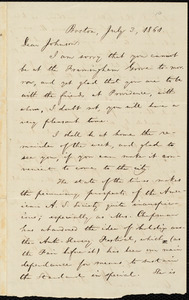 Boston, July 3, 1861.
Dear Johnson:
I am sorry that you cannot
be at the Framingham Grove to-mor-
row, and yet glad that you are to be
with the friends at Providence, with
whom, I doubt not you will have a
very pleasant time.
I shall be at home the re-
mainder of the week, and glad to
see you, if you can make it con-
venient to come to the city.
The state of the times makes
the pecuniary prospects of the Amer-
ican A. S. Society quite
especially as Mrs. Chapman
has abandoned the idea of holding an-
other Anti-Slavery Festival, which (as
the Fair before it) has been our main
dependence for means to sustain
the Standard in special. She is